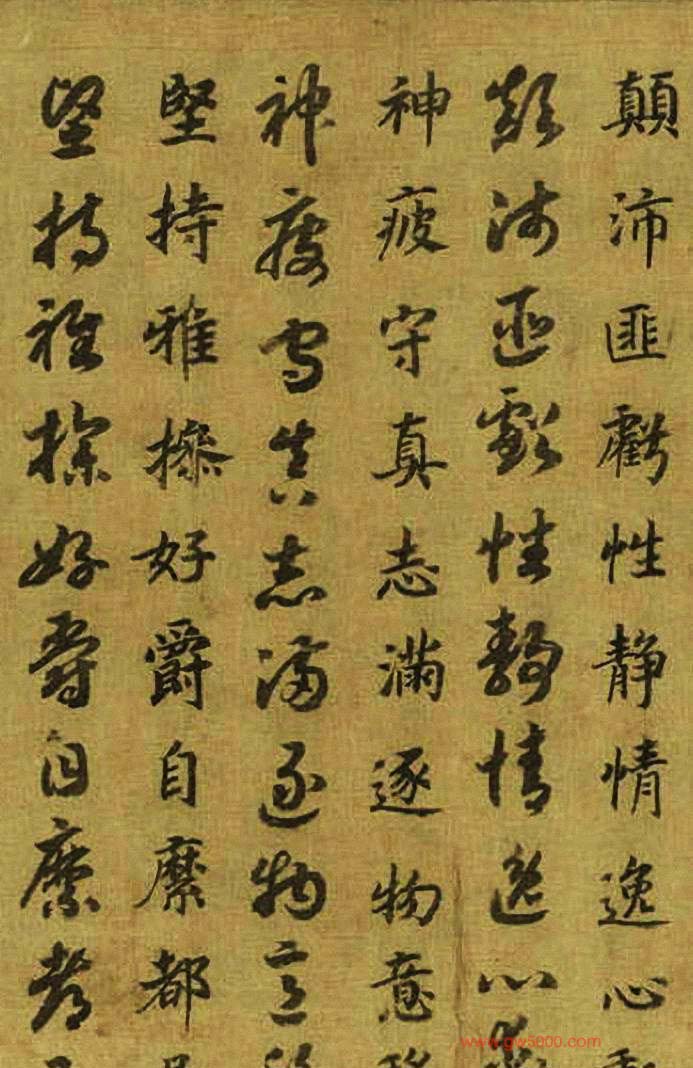 顛沛匪虧性静情逸心
顛沛匪虧性静情逸心
神疲守真志滿逐物意
神疲守真志滿逐物意
堅持雅操好爵自縻都
堅持雅操好爵自縻都
www.gw5000.com